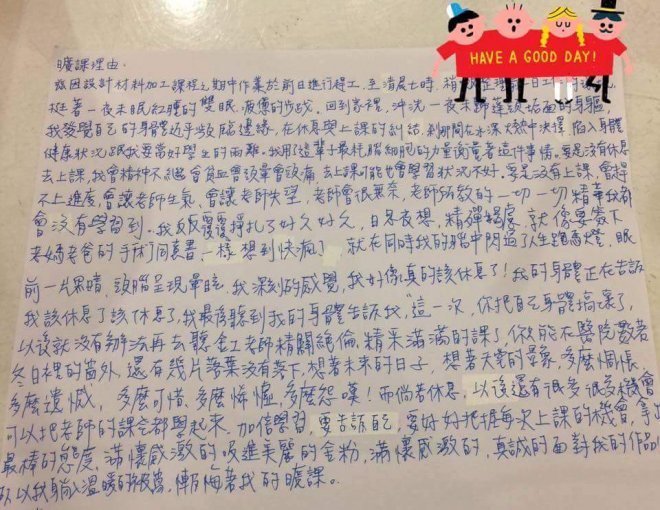 HAVE A GOOD DAY!
曠課理由:
茲因設計材料加工課程之期中作業於前日進行趕工，至清晨七時，稍
挺著一夜未眠紅腫的雙眼疲憊的步伐，回到家裡，沖洗一夜未歸蓬頭垢面的身軀
我發覺自己的身體近乎效能邊緣，在休息與上課的糾結，剎那間在水深火熱中決擇，陷入身體
健康狀況跟我要當好學生的兩難。我用了這輩子最耗腦細胞的力量衡量著這件事情。要是沒有休息
去上課，我會精神不繼會貧血會頭暈會頭痛，去上課可能也會學習狀況不好，要是沒有上課，會趕
不上進度，會讓老師生氣，會讓老師失望，老師會很無奈，老師所教的一切一切精華我都
會沒有學習到。我反反覆覆掙扎了好久好久，日思夜想，精殫竭慮，就像要簽下
老媽老爸的手術同意書一樣想到快瘋了，就在同時我的腦中閃過了人生跑馬燈，眼
前一片黑暗，頭腦呈現暈眩，我深刻的感覺，我好像真的該休息了！我的身體正在告訴
我該休息了該休息了，我最後聽到我的身體告訴我，"這一次，你把自己身體搞壞了，
以後就沒有辦法再去聽金工老師精闢絕倫，精采滿滿的課了，你只能在醫院數著
冬日裡的窗外，還有幾片落葉沒有落下，想著未來的日子，想著天堂的景象，多麼惆悵，
多麼遺憾，多麼可惜，多麼憐憫，多麼怨嘆！而倘若休息，以後還有很多很多機會
可以把老師的課全都學起來，加倍學習，要告訴自己，要好好把握每次上課的機會，拿出
最棒的態度，滿懷感激的吸進美麗的金粉，滿懷感激的，真誠的面對我的作品
所以我躺入溫暖的被窩，懺悔著我的曠課。